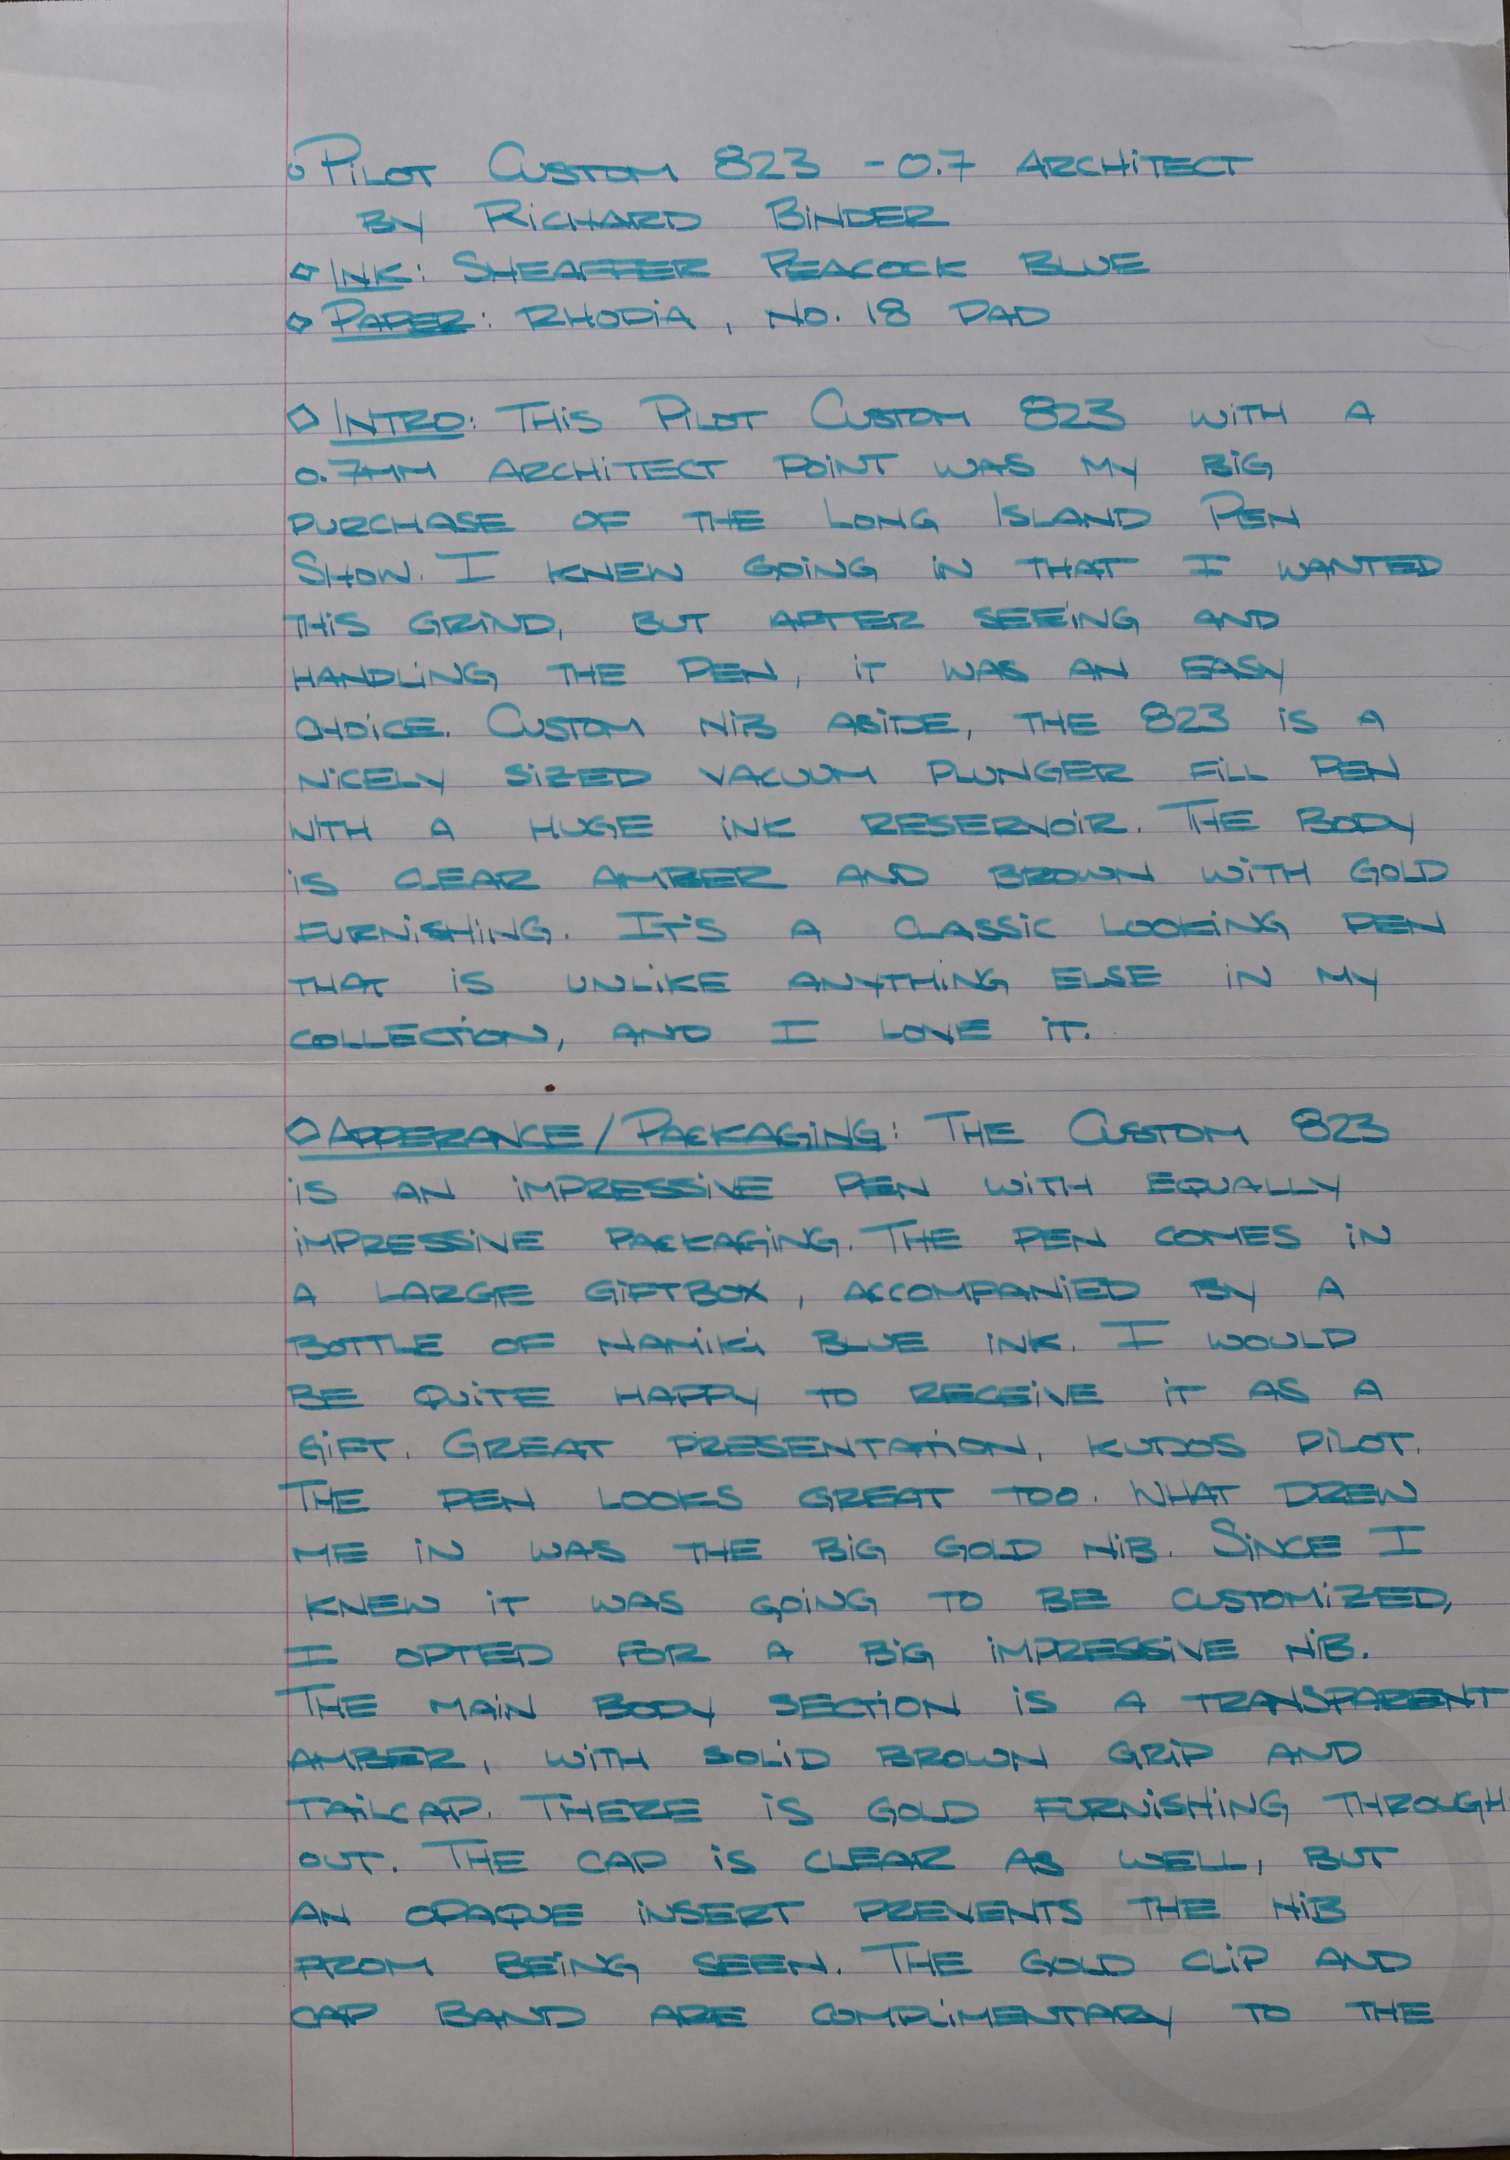 Pilot Custom 823 - 0.7 Architect
by Richard Binder
Ink: Sheaffer Peacock Blue
Paper: Rhodia, No. 18 Pad
Intro: This Pilot Custom 823 with a
0.7mm architect point was my big
purchase of the Long Island Pen
Show. I knew going in that I wanted
this grind, but after seeing and
handling the pen, it was an easy
choice. Custom nib aside, the 823 is a
nicely sized vacuum plunger fill pen
with a huge ink reservoir. The body
is clear amber and brown with gold
furnishing. It's a classic looking pen
that is unlike anything else in my
collection, and I love it.
Apperance/Packaging: The Custom 823
is an impressive pen with equally
impressive packaging. The pen comes in
a large giftbox, accompanied by a
bottle of Namiki blue ink. I would
be quite happy to receive it as a
gift. Great presentation, kudos Pilot.
The pen looks great too. What drew
me in was the big gold nib. Since I
knew it was going to be customized,
I opted for a big impressive nib.
The main body section is a transparent
amber, with solid brown grip and
tailcap. There is gold furnishing through
out. The cap is clear as well, but
an opaque insert prevents the nib
from being seen. The gold clip and
cap band are complimentary to the